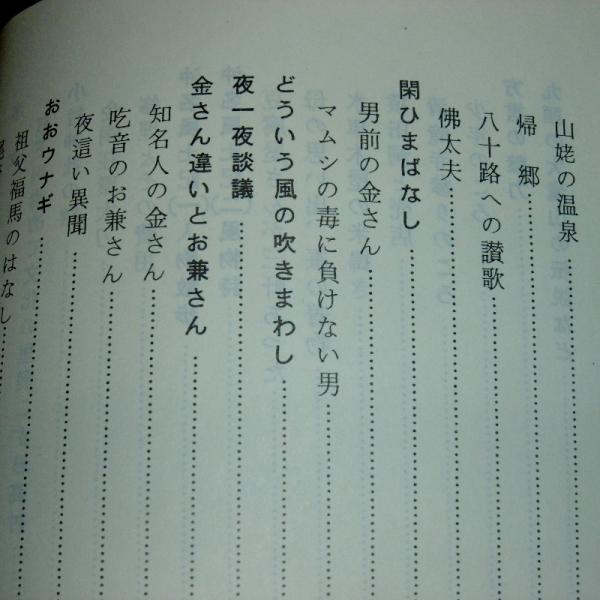 山姥の温泉
帰郷
八十路への讃歌
佛太夫
閑ひまばなし
男前の金さん
マムシの毒に負けない男
どういう風の吹きまわし
夜一夜談議
金さん違いとお兼さん
知名人の金さん
吃音のお兼さん
夜這い異聞
おおウナギ
祖父福馬のはなし